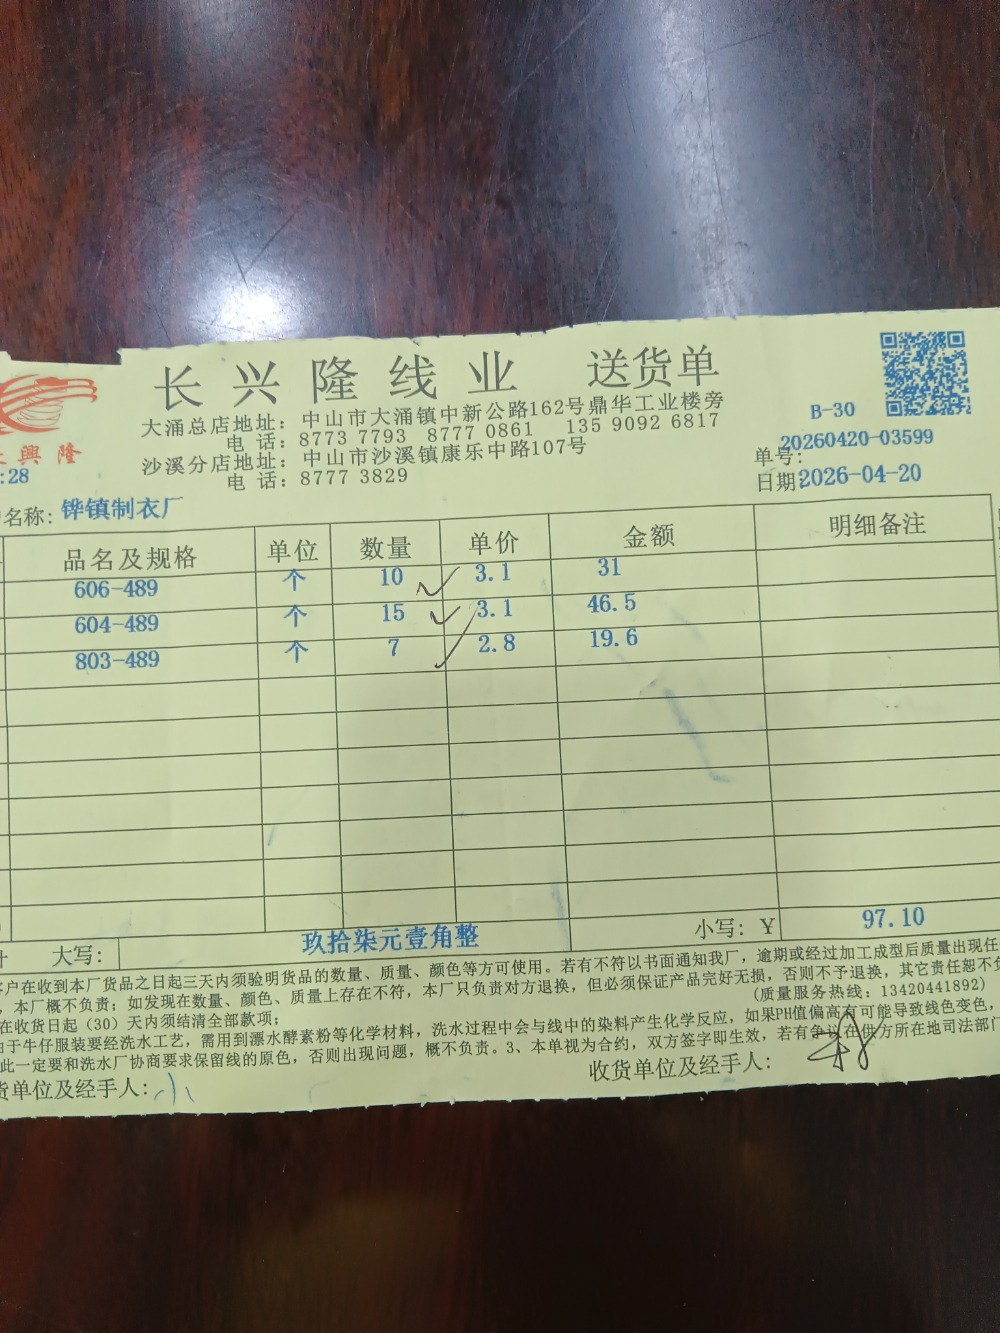 长兴隆线业 送货单
大涌总店地址：中山市大涌镇中新公路162号鼎华工业楼旁
电 话：8773 7793 8777 0861 135 9092 6817
沙溪分店地址：中山市沙溪镇康乐中路107号
电 话：8777 3829
B-30
興隆
:28
单号：20260420-03599
日期：2026-04-20
名称：铧镇制衣厂
品名及规格 单位 数量 单价 金额 明细备注
606-489 个 10 3.1 31
604-489 个 15 3.1 46.5
803-489 个 7 2.8 19.6
大写： 玖拾柒元壹角整 小写：Y 97.10
客户在收到本厂货品之日起三天内须验明货品的数量、质量、颜色等方可使用。若有不符以书面通知我厂，逾期或经过加工成型后质量出现任
，本厂概不负责；如发现在数量、颜色、质量上存在不符，本厂只负责对方退换，但必须保证产品完好无损，否则不予退换，其它责任恕不负
在收货日起（30）天内须结清全部款项； (质量服务热线：13420441892)
由于牛仔服装要经洗水工艺，需用到漂水酵素粉等化学材料，洗水过程中会与线中的染料产生化学反应，如果PH值偏高有可能导致线色变色，
此一定要和洗水厂协商要求保留线的原色，否则出现问题，概不负责。3、本单视为合约，双方签字即生效，若有争议在供方所在地司法部门
货单位及经手人： 收货单位及经手人：